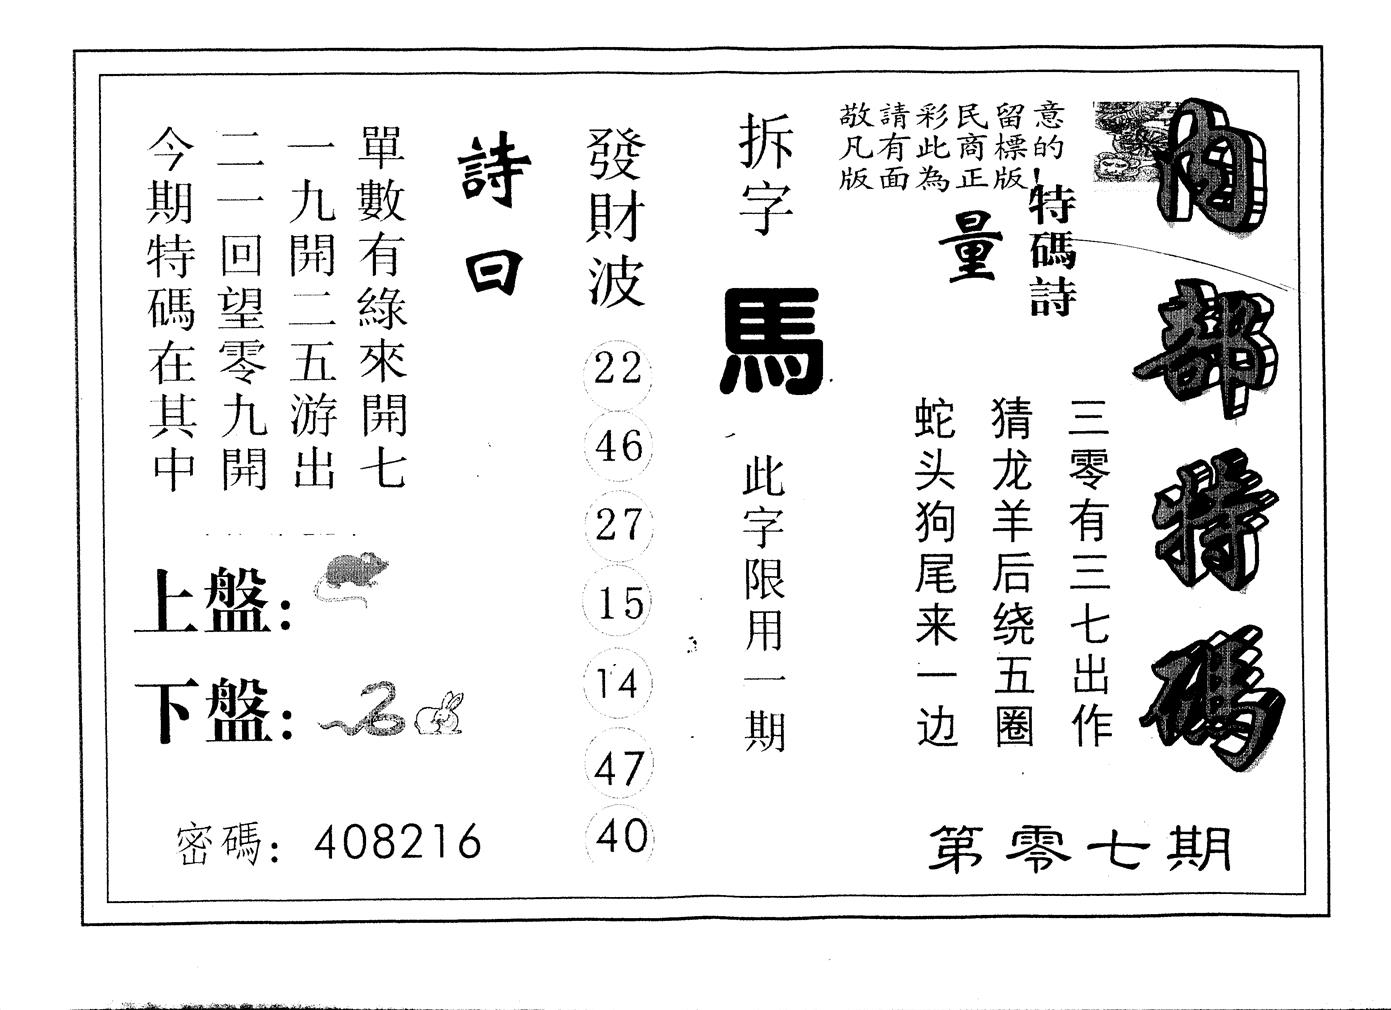 内部特碼
第零七期
敬請彩民留意
凡有此商標的
版面為正版!
特碼詩
量
三零有三七出作
猜龙羊后绕五圈
蛇头狗尾来一边
拆字
馬
此字限用一期
發財波
22
46
27
15
14
47
40
詩曰
單數有綠來開七
一九開二五游出
二一回望零九開
今期特碼在其中
上盤:
下盤:
密碼: 408216